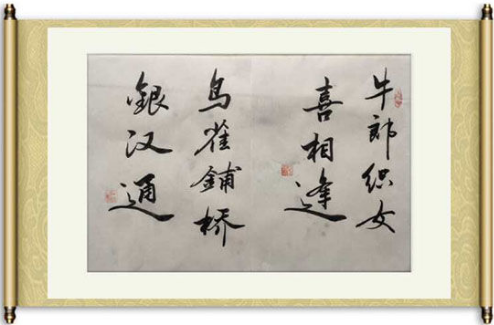 牛郎织女
喜相逢
鸟雀铺桥
銀汉通